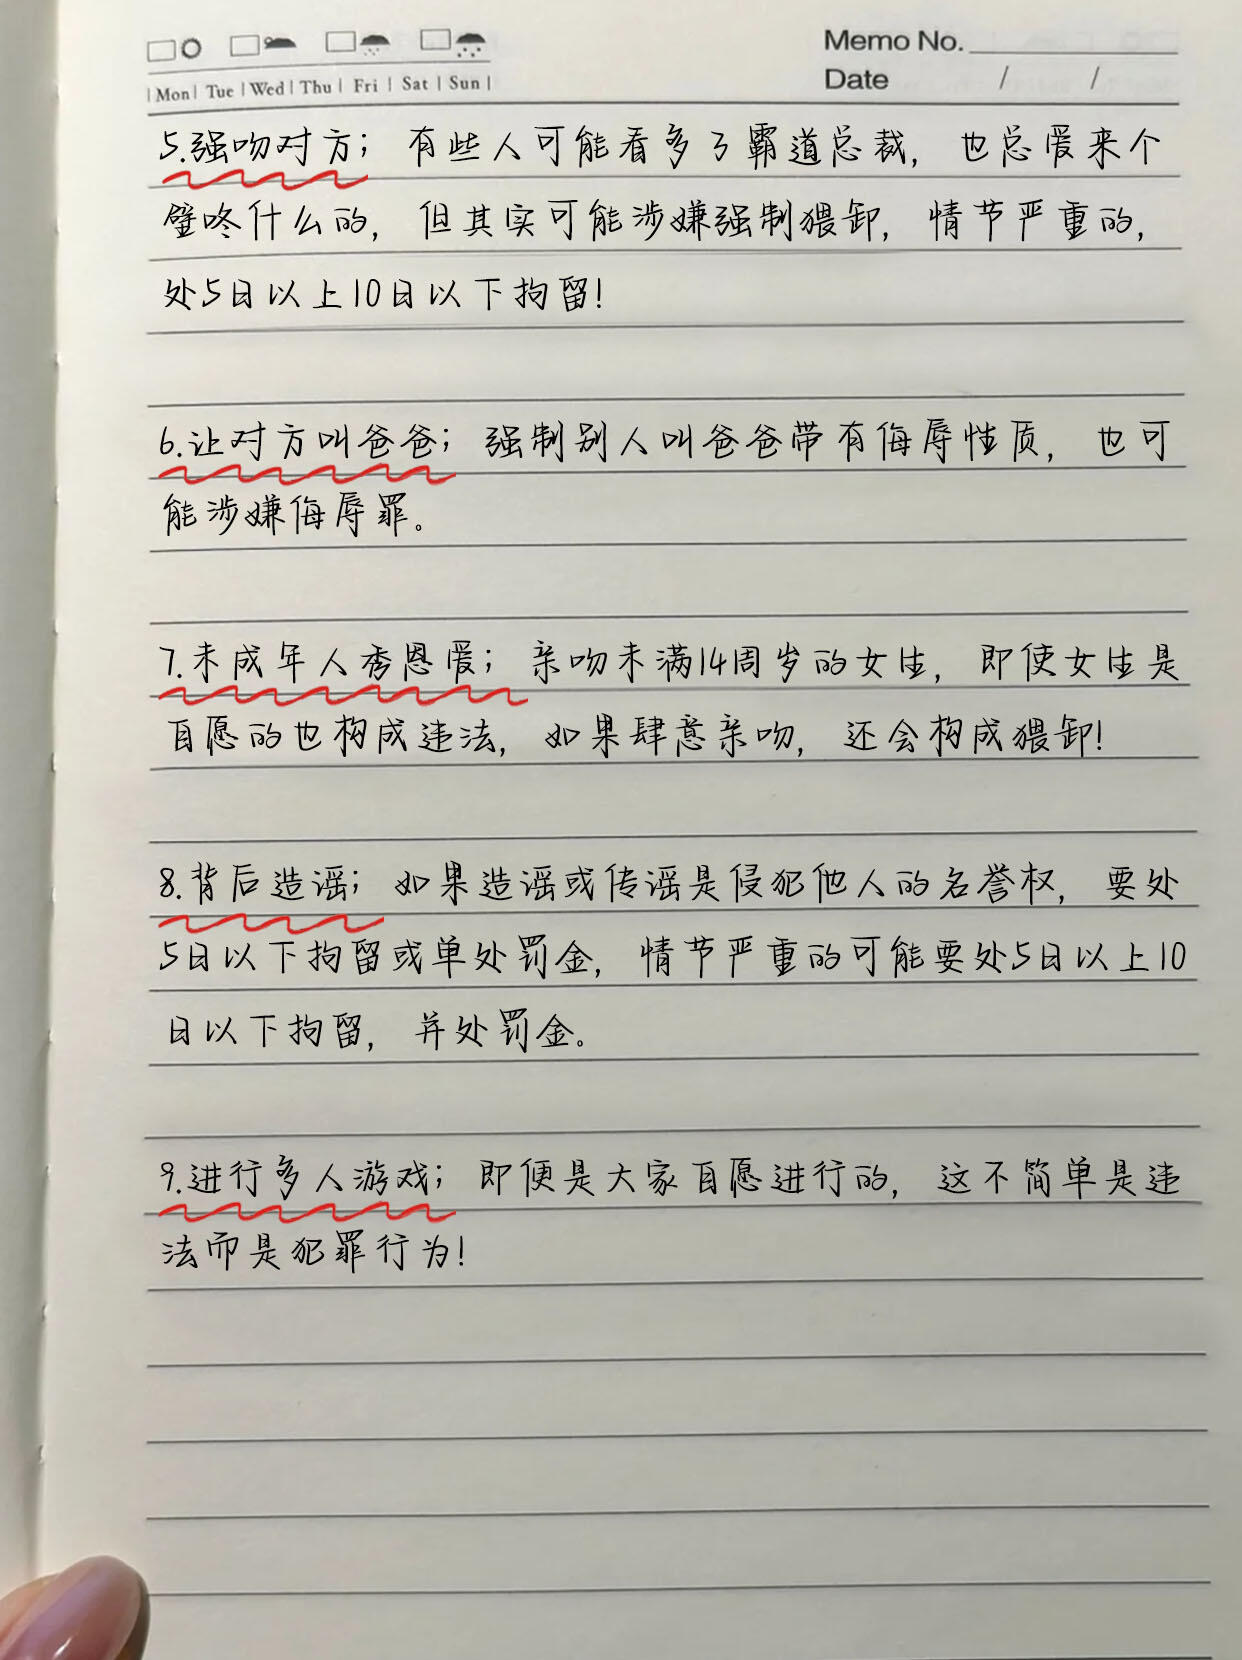 Memo No.
Mon Tue Wed Thu Fri Sat Sun
Date / /
5.强吻对方；有些人可能看多了霸道总裁，也总爱来个
壁咚什么的，但其实可能涉嫌强制猥卸，情节严重的，
处5日以上10日以下拘留！
6.让对方叫爸爸；强制别人叫爸爸带有侮辱性质，也可
能涉嫌侮辱罪。
7.未成年人秀恩爱；亲吻未满14周岁的女生，即使女生是
自愿的也构成违法，如果肆意亲吻，还会构成猥卸！
8.背后造谣；如果造谣或传谣是侵犯他人的名誉权，要处
5日以下拘留或单处罚金，情节严重的可能要处5日以上10
日以下拘留，并处罚金。
9.进行多人游戏；即便是大家自愿进行的，这不简单是违
法而是犯罪行为！